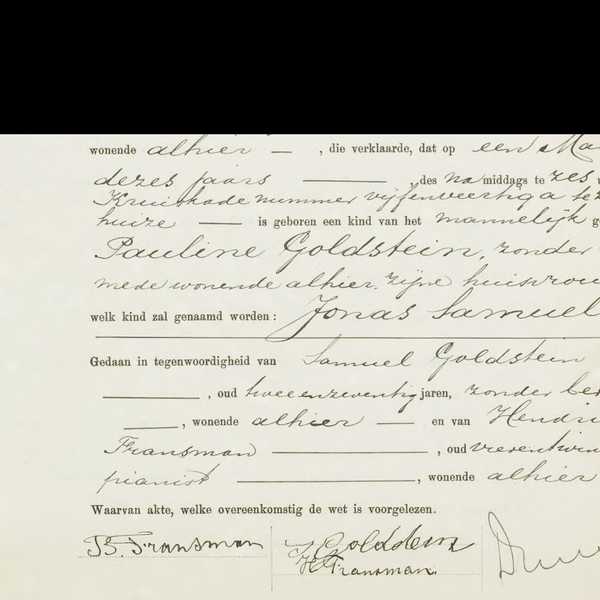 wonende alhier — , die verklaarde, dat op een Ma
dezes jaars — , des na middags te zes
Kruiskade nummer vijfenveertig a te
huize — is geboren een kind van het mannelijk g
Pauline Goldstein, zonder
mede wonende alhier. zijne huisvrou
welk kind zal genaamd worden: Jonas Samuel
Gedaan in tegenwoordigheid van Samuel Goldstein
— , oud tweeenzeventig jaren, zonder be
— , wonende alhier — en van Hendri
Fransman — , oud
pianist — , wonende alhier
Waarvan akte, welke overeenkomstig de wet is voorgelezen.
B. Fransman
S. Goldstein
H Fransman.